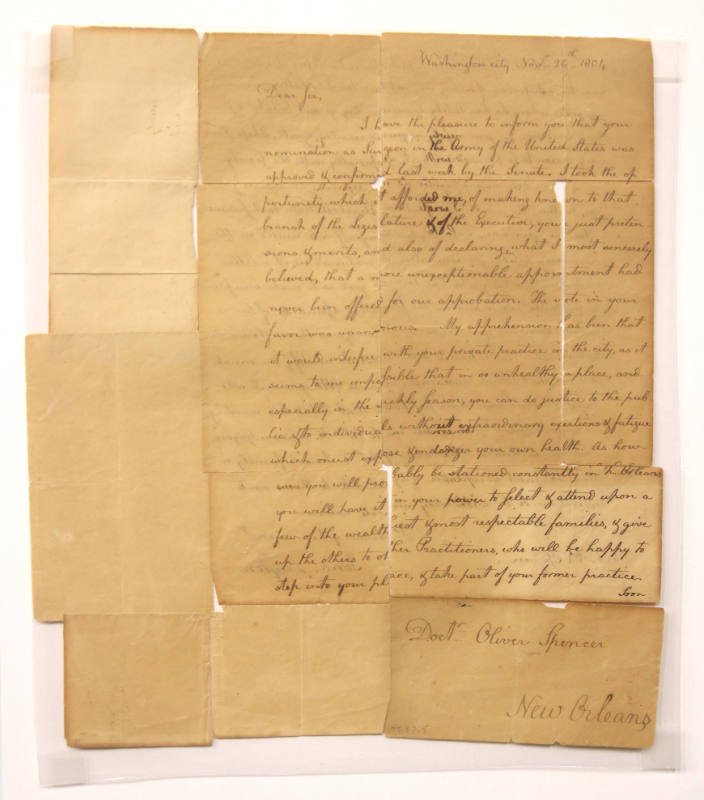 Washington city Novr. 26th. 1804
Dear Sir,
I have the pleasure to inform you that your
nomination as Surgeon in the Army of the United States was
approved & confirmed last week by the Senate. I took the op
portunity which it afforded me, of making known to that
branch of the Legislature & of the Executive, your just preten
sions & merits, and also of declaring, what I most sincerely
believed, that a more unexceptionable appointment had
never been offered for our approbation. The vote in your
favor was unanimous. My apprehension has been that
it would interfere with your private practice in the city, as it
seems to me impossible that in so unhealthy a place, and
especially in the sickly season, you can do justice to the pub
lic & to individuals without extraordinary exertions & fatigue
which must expose & endanger your own health. As how
ever you will probably be stationed constantly in N. Orleans
you will have it in your power to select & attend upon a
few of the wealthiest & most respectable families, & give
up the others to other Practitioners, who will be happy to
step into your place, & take part of your former practice.
Soon
Doctr. Oliver Spencer
New Orleans